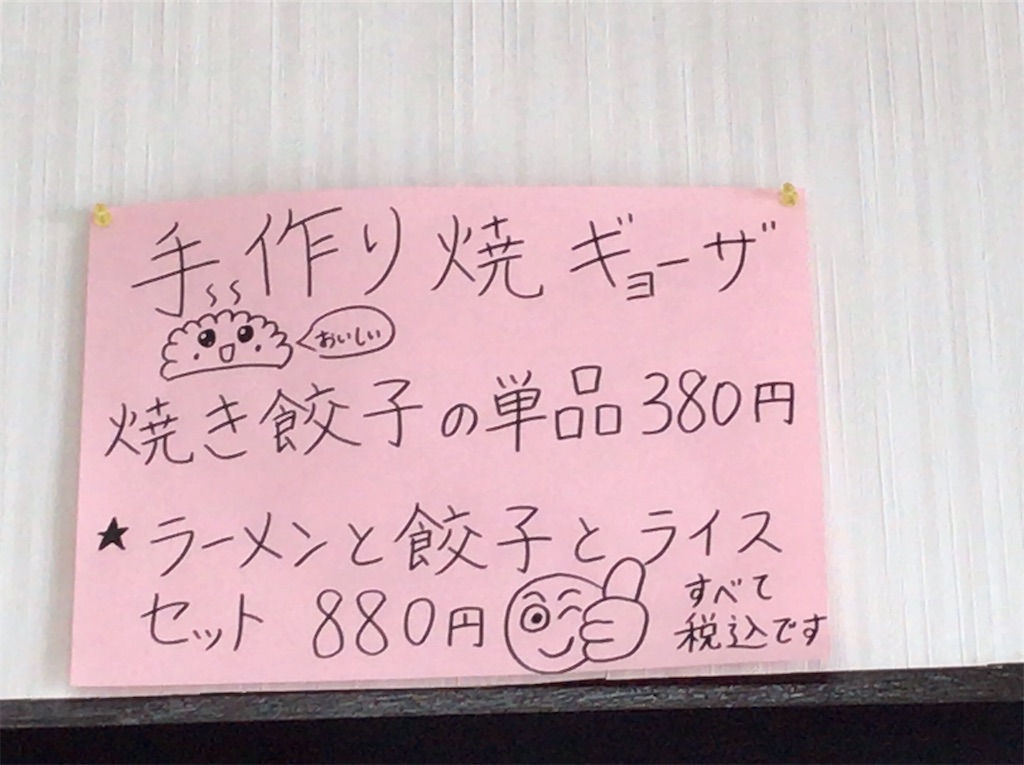 手作り焼ギョーザ
おいしい
焼き餃子の単品380円
★ラーメンと餃子とライス
セット 880円
すべて
税込です